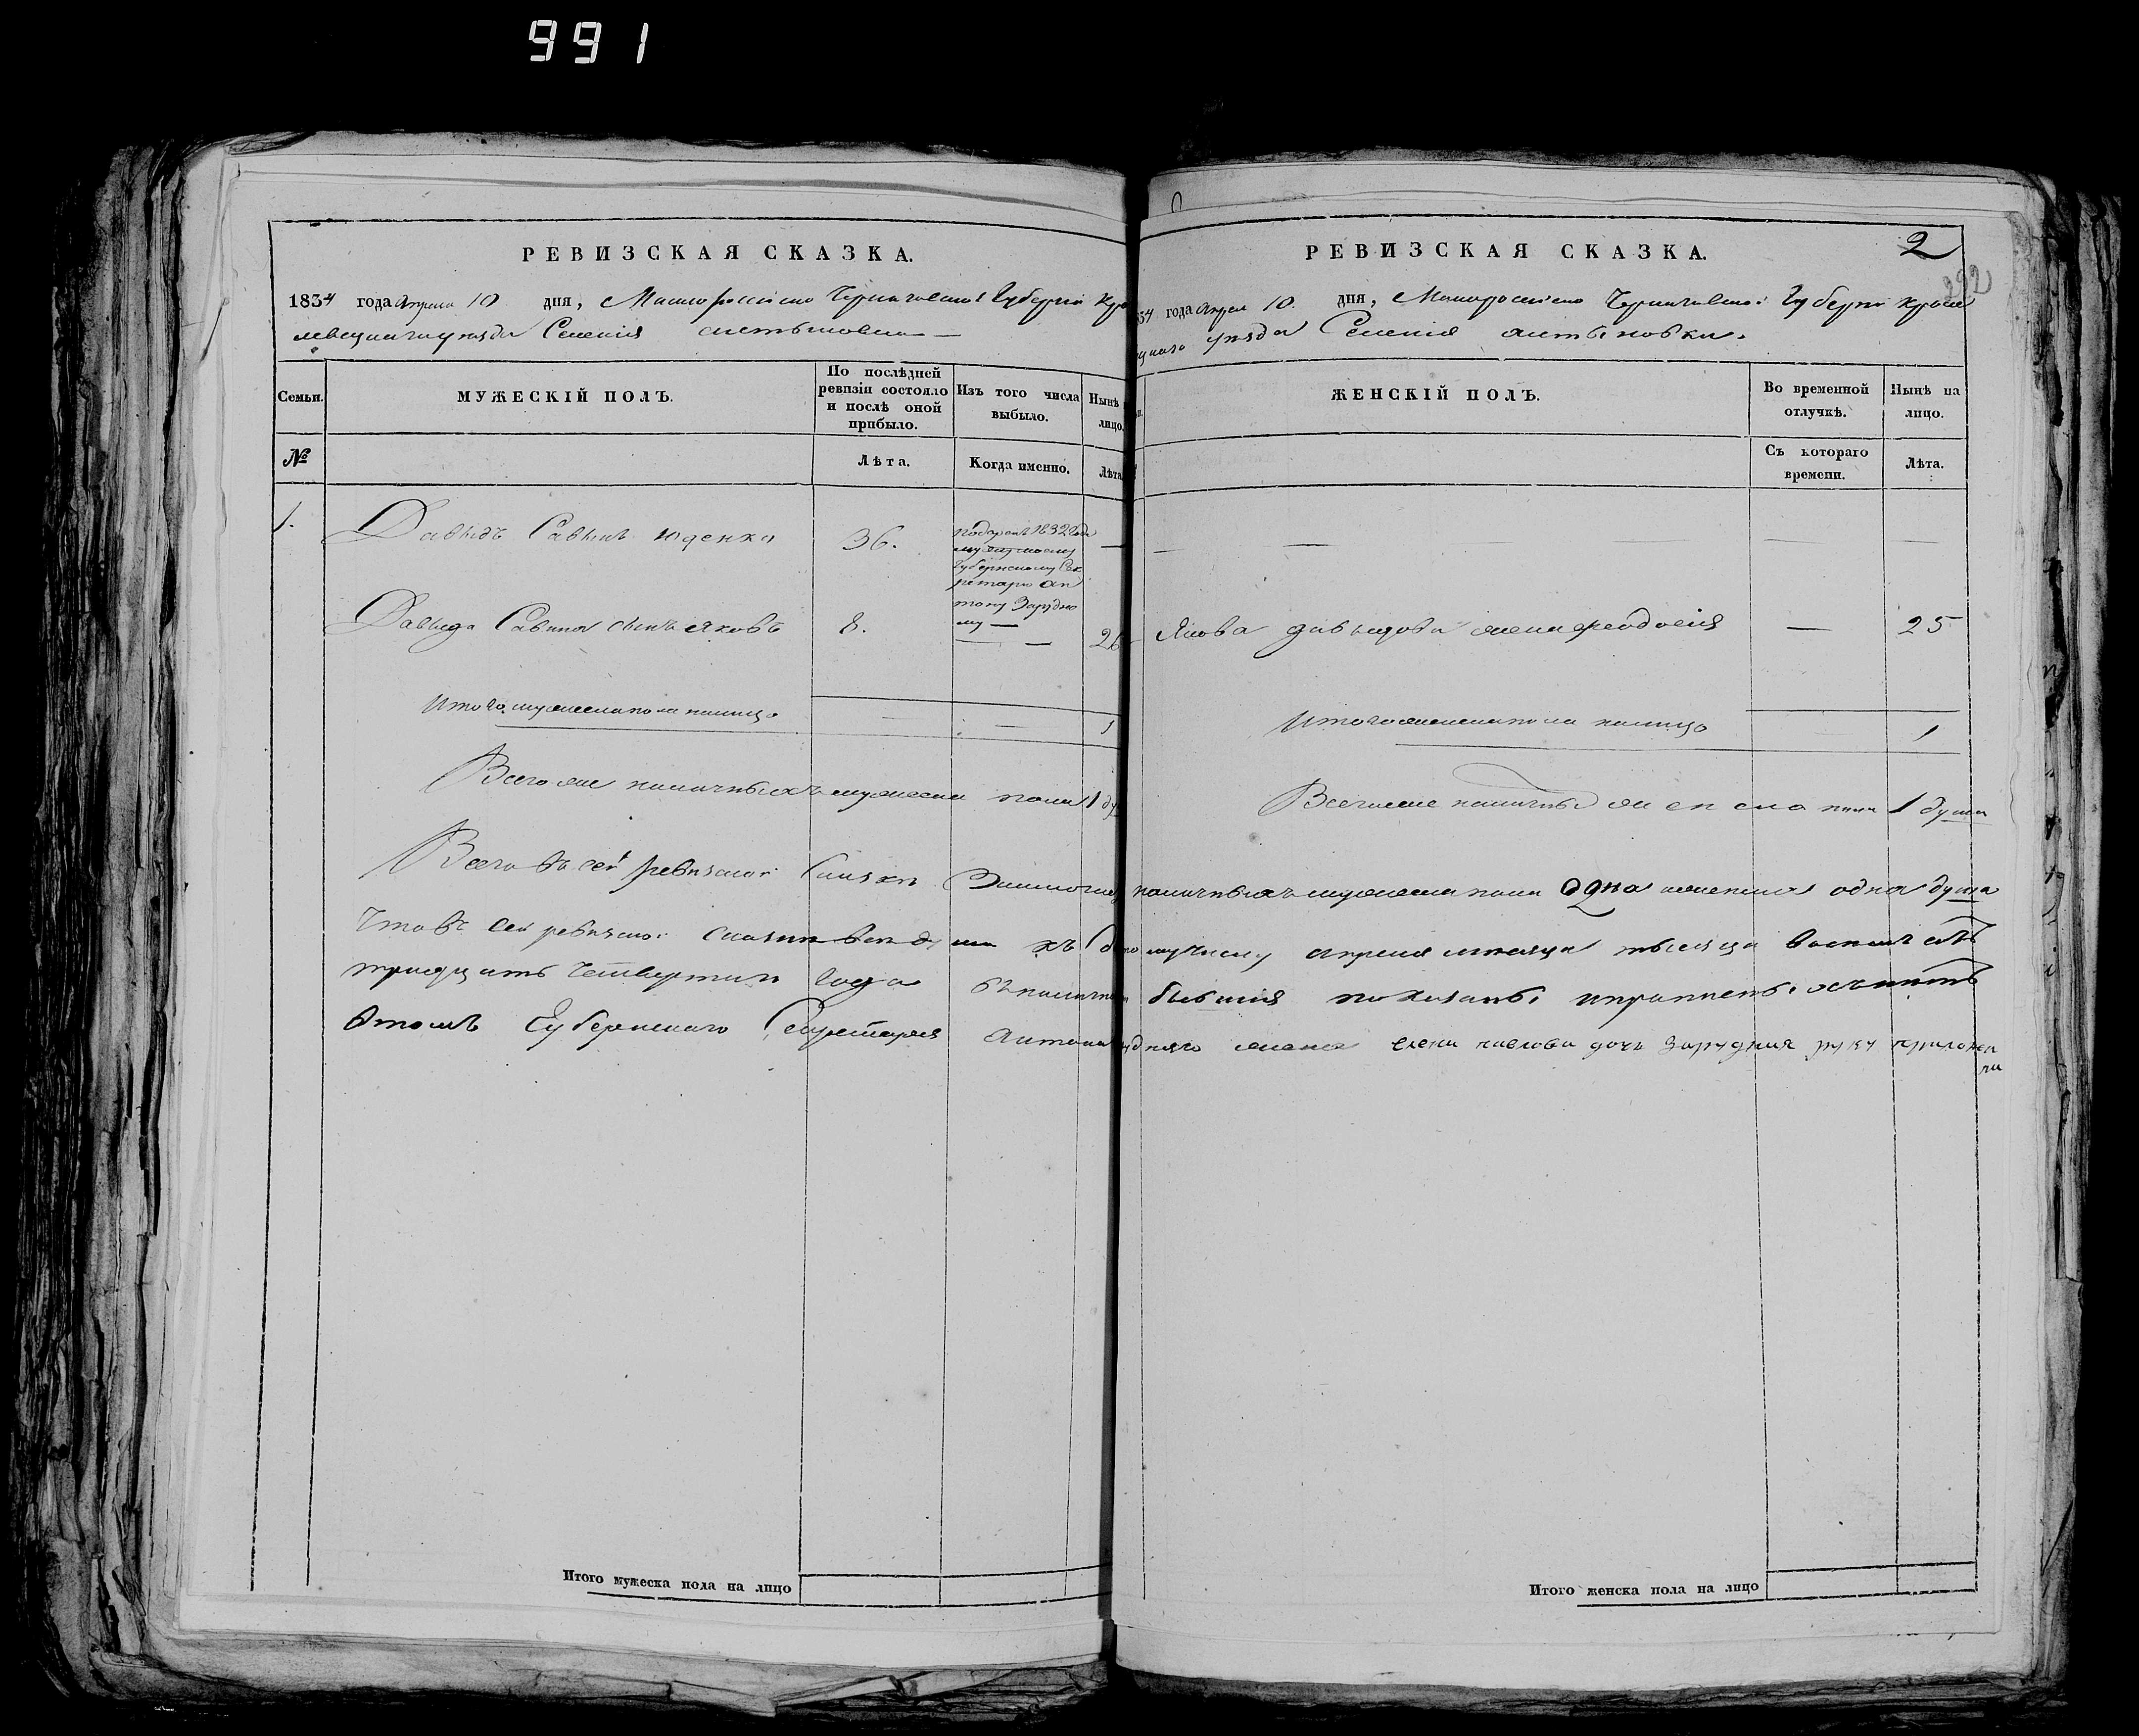 991
РЕВИЗСКАЯ СКАЗКА.
1834 года Апреля 10 дня, Малороссійско Черниговской Губерніи Кро
левецкаго уезда Селенія
Семьи.
МУЖЕСКІЙ ПОЛЪ.
По послѣдней ревизіи состояло и послѣ оной прибыло.
Изъ того числа выбыло.
Нынѣ
лицо.
№
Лѣта.
Когда именно.
Лѣта
1.
Давыдъ Савинъ Юденко
36.
1832 года
Губернскому Сек
ретарю Ан
тону Зарудно
му —
Давыда Савина сынъ Яковъ
8.
26
Итого мужеска пола налицо
1
Всего же наличныхъ мужеска пола 1 ду
РЕВИЗСКАЯ СКАЗКА.
2
34 года Апреля 10. дня, Малороссійско Черниговской Губерни Кроле
уезда Селенія Алтыновки.
ЖЕНСКІЙ ПОЛЪ.
Во временной отлучкѣ.
Нынѣ на лицо.
Съ котораго времени.
Лѣта.
Якова Давыдова жена Феодосия
—
25
Итого женска пола налицо
1
Всего же наличных женска пола 1 душа
Всего въ сей ревизской Сказки наличныхъ мужеска пола одна женска одна душа
Что въ сей ревизской сказки все души къ числу апреля месяца тысяща восемъ сотъ
тридцать четвертаго года в наличности бывшия показаны
Втомъ Губернского Секретаря Антона жена Елена Павлова дочь Зарудная руку приложи
ла
Итого мужеска пола на лицо
Итого женска пола на лицо